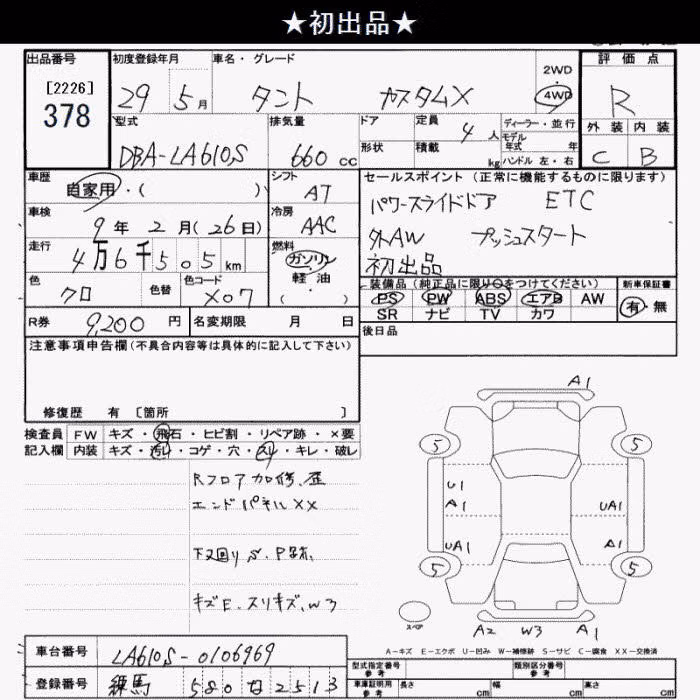 ★初出品★
出品番号 初度登録年月 車名・グレード 2WD 4WD 評価点
[2226]
378
29 5月 タント カスタムX R
型式 排気量 ドア 定員 4人 ディーラー・並行 外装 内装
DBA-LA610S 660cc 形状 積載 kg モデル年式 年 ハンドル 左・右 C B
車歴 自家用・( ) シフト AT セールスポイント (正常に機能するものに限ります)
パワースライドドア ETC
車検 9年2月(26日) 冷房 AAC
外AW プッシュスタート
走行 4万6千505km 燃料 ガソリン 軽油 ( )
初出品
色 クロ 色替 色コード X07
装備品(純正品に限り○をつけてください) 新車保証書
PS PW ABS エアB AW 有・無
SR ナビ TV カワ
R券 9,200円 名変期限 月 日 後日品
注意事項申告欄(不具合内容等は具体的に記入して下さい)
修復歴 有 〔箇所 〕
検査員 FW キズ・飛石・ヒビ割・リペア跡・×要
記入欄 内装 キズ・汚れ・コゲ・穴・スリ・キレ・破レ
Rフロア加修、歪
エンドパネルXX
キズE.スリキズ、W3
A1
5 5
U1
A1 UA1
UA1 A1
5 5
スペア
A2 W3 A1
A-キズ E-エクボ U-凹み W-補修跡 S-サビ C-腐食 XX-交換済
車台番号 LA610S-0106969
登録番号 練馬 580 な 2513
型式指定番号 参考 類別区分番号 参考
車庫証明用 参考 長さ cm 幅 cm 高さ cm